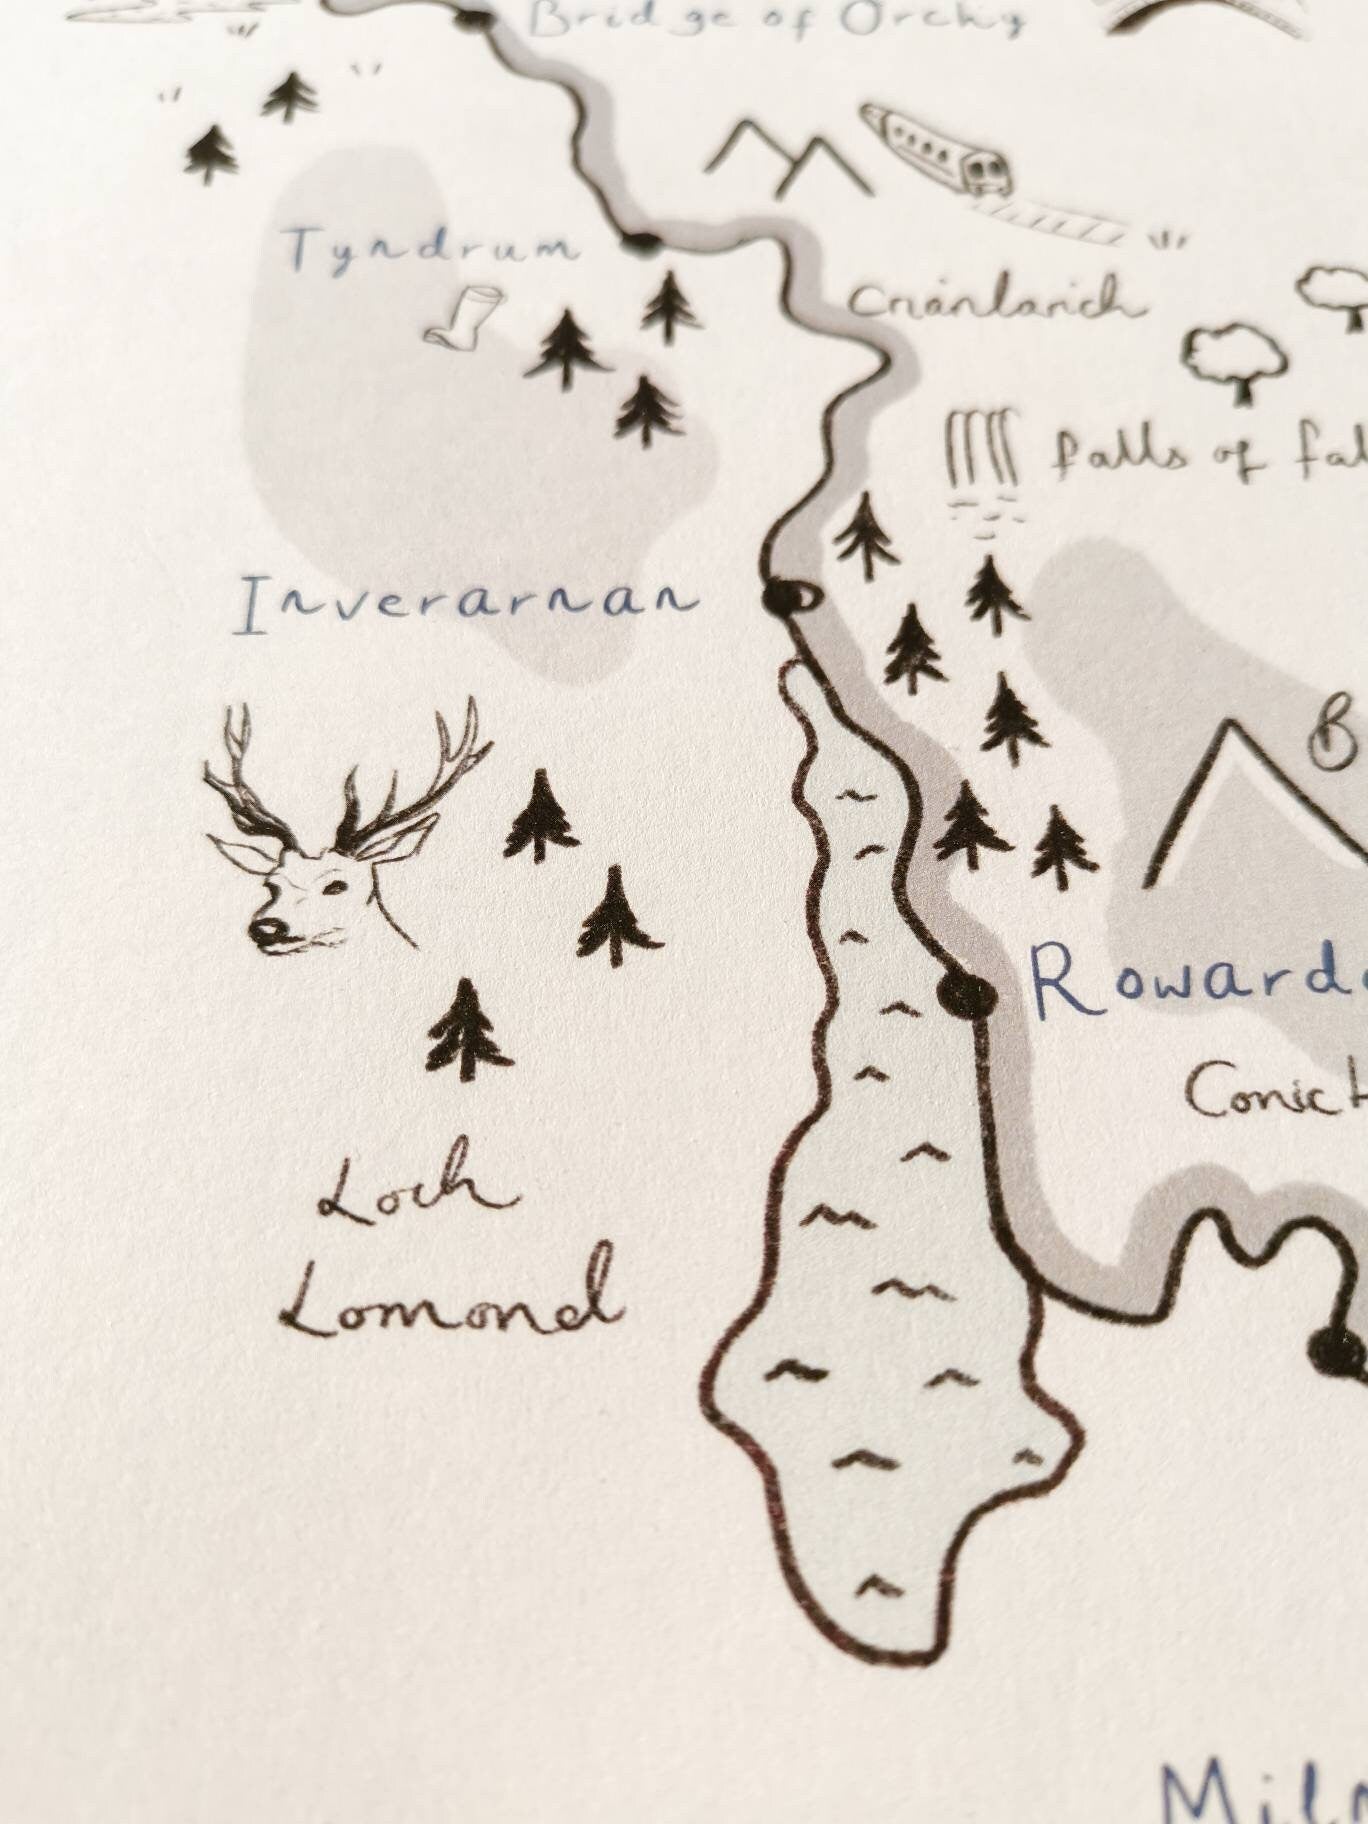 Bridge of Orchy
Tyndrum
Crianlarich
falls of fal
Inverarnan
B
Rowarde
Conic H
Loch
Lomond
Miln